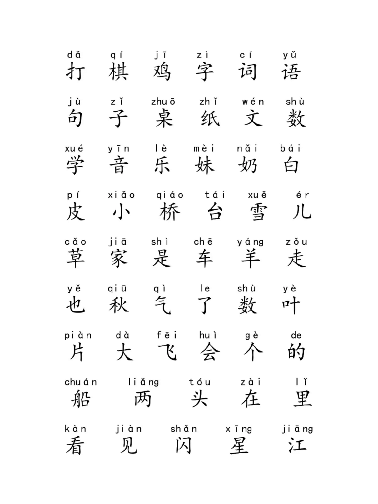 dǎ qí jī zì cí yǔ
打 棋 鸡 字 词 语
jù zǐ zhuō zhǐ wén shù
句 子 桌 纸 文 数
xué yīn lè mèi nǎi bái
学 音 乐 妹 奶 白
pí xiǎo qiáo tái xuě ér
皮 小 桥 台 雪 儿
cǎo jiā shì chē yáng zǒu
草 家 是 车 羊 走
yě qiū qì le shù yè
也 秋 气 了 数 叶
piàn dà fēi huì gè de
片 大 飞 会 个 的
chuán liǎng tóu zài lǐ
船 两 头 在 里
kàn jiàn shǎn xīng jiāng
看 见 闪 星 江